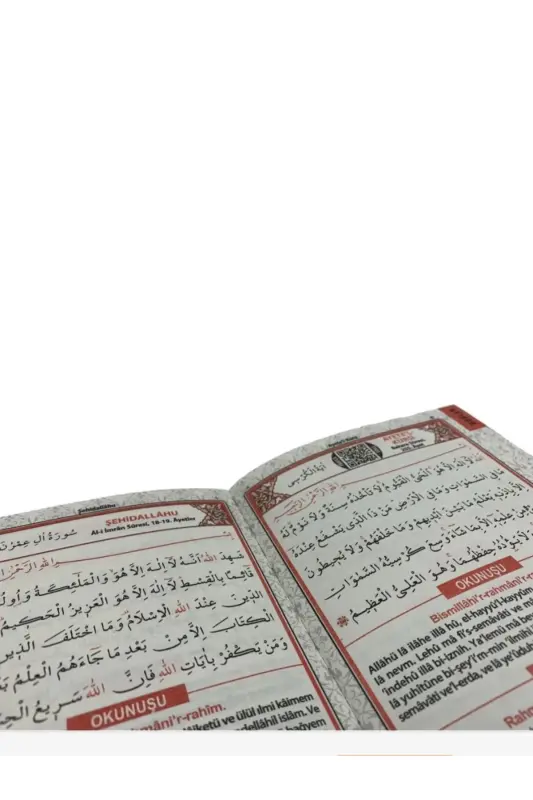 Şehidallâhu
ŞEHİDALLÂHU
Âl-i İmrân Sûresi, 18-19. Âyetler
سُورَةُ اٰلِ عِمْرٰنَ
شَهِدَ اللّٰهُ اَنَّهُ لَٓا اِلٰهَ اِلَّا هُوَ وَالْمَلٰٓئِكَةُ وَاُولُوا
قَٓائِمًا بِالْقِسْطِ لَٓا اِلٰهَ اِلَّا هُوَ الْعَزِيزُ الْحَكِيمُ
الدِّينَ عِنْدَ اللّٰهِ الْاِسْلَامُ وَمَا اخْتَلَفَ الَّذِينَ
الْكِتَابَ اِلَّا مِنْ بَعْدِ مَا جَٓاءَهُمُ الْعِلْمُ
وَمَنْ يَكْفُرْ بِاٰيَاتِ اللّٰهِ فَاِنَّ اللّٰهَ سَرِيعُ
OKUNUŞU
mâni'r-rahîm.
ve ülül ılmi kâimem
dellâhil islâm. Ve
bağyem
ÂYETE'L-
KÜRSÎ
Bakara Sûresi,
255. Âyet
اٰيَةُ الْكُرْسِيِّ
اَللّٰهُ لَٓا اِلٰهَ اِلَّا هُوَ اَلْحَيُّ الْقَيُّومُ لَا تَأْخُذُهُ سِنَةٌ وَلَا نَوْمٌ لَهُ
مَا فِي السَّمٰوَاتِ وَمَا فِي الْاَرْضِ مَنْ ذَا الَّذِي يَشْفَعُ عِنْدَهُ
اِلَّا بِاِذْنِهِ يَعْلَمُ مَا بَيْنَ اَيْدِيهِمْ وَمَا خَلْفَهُمْ وَلَا يُحِيطُونَ
عِلْمِهِ اِلَّا بِمَا شَٓاءَ وَسِعَ كُرْسِيُّهُ السَّمٰوَاتِ
وَلَا يَؤُدُهُ حِفْظُهُمَا وَهُوَ الْعَلِيُّ الْعَظِيمُ
OKUNUŞU
Bismillâhi'r-rahmâni'r-
Allâhü lâ ilâhe illâ hû, el-hayyü'l-kayyûm
lâ nevm. Lehü mâ fi's-semâvâti ve
'indehü illâ bi-iznih. Ya'lemü mâ
lâ yuhîtûne bi-şey'i'm-min 'ilmihî
semâvâti ve'l-erda, ve lâ